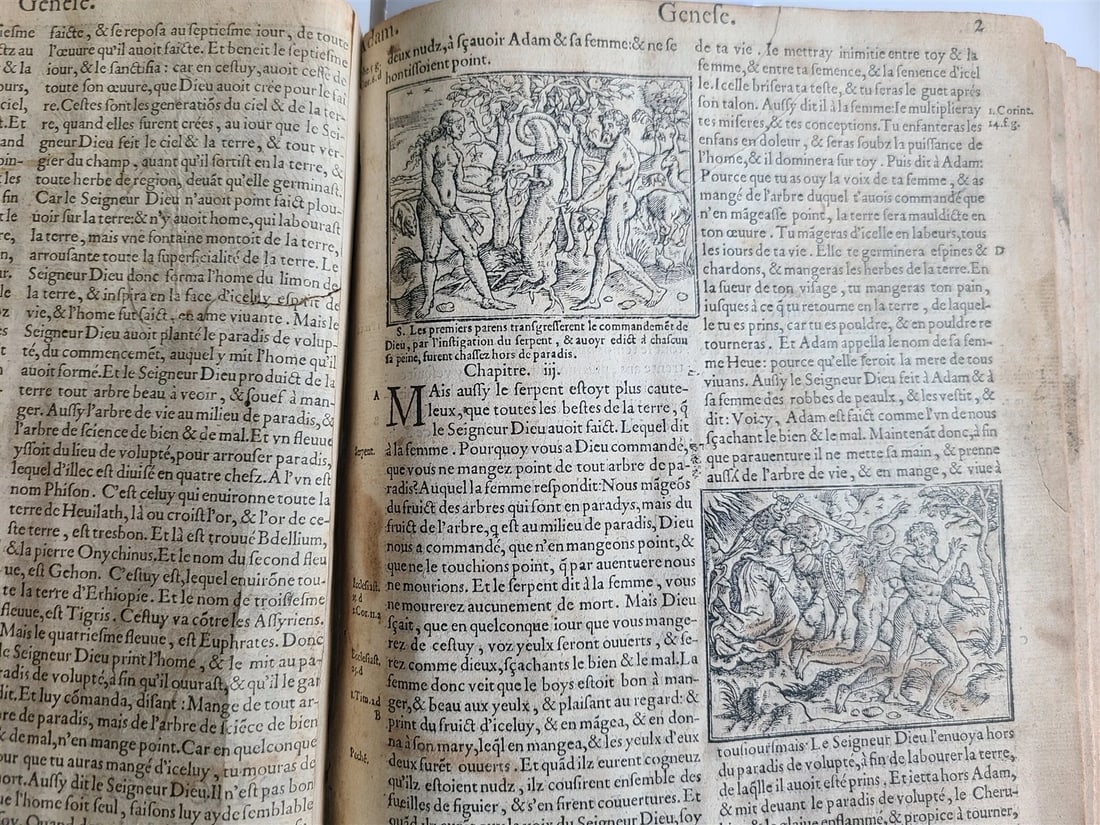 Genese.
faicte, & se reposa au septiesme iour, de toute
l'œuure qu'il auoit faicte. Et beneit le septiesme
iour, & le sanctifia : car en cestuy, auoit cessé de
toute son œuure, que Dieu auoit crée pour le fai
re. Cestes sont les generatiōs du ciel & de la ter-
re, quand elles furent crées, au iour que le Sei-
gneur Dieu feit le ciel & la terre, & tout ver-
gier du champ, auant qu'il sortist en la terre, &
toute herbe de region, deuāt qu'elle germinast.
Car le Seigneur Dieu n'auoit point faict plou-
uoir sur la terre: & n'y auoit home, qui labourast
la terre, mais vne fontaine montoit de la terre,
arrousante toute la superficialité de la terre. Le
Seigneur Dieu donc forma l'home du limon de
la terre, & inspira en la face d'iceluy esprit de
vie, & l'home fut faict en ame viuante. Mais le
Seigneur Dieu auoit planté le paradis de volup-
té, du commencemēt, auquel y mit l'home qu'il
auoit formé. Et le Seigneur Dieu produict de la
terre tout arbre beau à veoir, & souef à man-
ger. Aussy l'arbre de vie au milieu de paradis, &
l'arbre de science de bien & de mal. Et vn fleuue
yssoit du lieu de volupté, pour arrouser paradis,
lequel d'illec est diuisé en quatre chefz. A l'vn est
nom Phison. C'est celuy qui enuironne toute la
terre de Heuilath, là ou croist l'or, & l'or de ce-
ste terre, est tresbon. Et là est trouué Bdellium,
& la pierre Onychinus. Et le nom du second fleu
ue, est Gehon. C'estuy est, lequel enuirōne tou-
te la terre d'Ethiopie. Et le nom de troisiesme
fleuue, est Tigris. Cestuy va cōtre les Assyriens.
Mais le quatriesme fleuue, est Euphrates. Donc
le Seigneur Dieu print l'home, & le mit au pa-
radis de volupté, à fin qu'il ouurast, & qu'il le gar
dit. Et luy cōmanda, disant : Mange de tout ar-
bre de paradis, mais de l'arbre de sciēce de bien
& de mal, n'en mange point. Car en quelconque
iour que tu auras mangé d'iceluy, tu mouras de
mort. Aussy dit le Seigneur Dieu. Il n'est pas bon
que l'home soit seul, faisons luy ayde semblable
Genese.
2
Adam.
deux nudz, à sçauoir Adam & sa femme: & ne se
hontissoient point.
S. Les premiers parens transgresserent le commandemēt de
Dieu, par l'instigation du serpent, & auoyr edict à chascun
sa peine, furent chassez hors de paradis.
Chapitre. iij.
A
MAis aussy le serpent estoyt plus caute-
leux, que toutes les bestes de la terre, q̃
le Seigneur Dieu auoit faict. Lequel dit
Serpent.
à la femme. Pourquoy vous a Dieu commandé,
que vous ne mangez point de tout arbre de pa-
radis? Auquel la femme respondit: Nous māgeōs
du fruict des arbres qui sont en paradys, mais du
fruict de l'arbre, q̃ est au milieu de paradis, Dieu
nous a commandé, que n'en mangeons point, &
que ne le touchions point, q̃ par auentuere nous
ne mourions. Et le serpent dit à la femme, vous
ne mourerez aucunement de mort. Mais Dieu
sçait, que en quelconque iour que vous mange-
rez de cestuy, voz yeulx seront ouuerts, & se-
rez comme dieux, sçachants le bien & le mal. La
femme donc veit que le boys estoit bon à man-
ger, & beau aux yeulx, & plaisant au regard: &
print du fruict d'iceluy, & en māgea, & en don-
na à son mary, leq̃l en mangea, & les yeulx d'eux
deux furēt ouuerts. Et quād ilz eurent cogneuz
qu'ilz estoient nudz, ilz cousirent ensemble des
fueilles de figuier, & s'en firent couuertures. Et
Ecclesiast.
B
Peché.
de ta vie. Ie mettray inimitie entre toy & la
femme, & entre ta semence, & la semence d'icel
le. Icelle brisera ta teste, & tu seras le guet apres
son talon. Aussy dit il à la femme: Ie multiplieray
1. Corint.
14. f. g.
tes miseres, & tes conceptions. Tu enfanteras les
enfans en doleur, & seras soubz la puissance de
l'home, & il dominera sur toy. Puis dit à Adam:
Pource que tu as ouy la voix de ta femme, & as
mangé de l'arbre duquel t'auois commandé que
n'en māgeasse point, la terre sera mauldicte en
ton œuure. Tu māgeras d'icelle en labeurs, tous
les iours de ta vie. Elle te germinera espines &
D
chardons, & mangeras les herbes de la terre. En
la sueur de ton visage, tu mangeras ton pain,
iusques à ce q̃ tu retourne en la terre, de laquel-
le tu es prins, car tu es pouldre, & en pouldre re
tourneras. Et Adam appella le nom de sa fem-
me Heue: pource qu'elle seroit la mere de tous
viuans. Aussy le Seigneur Dieu feit à Adam & à
sa femme des robbes de peaulx, & les vestit, &
dit: Voicy, Adam est faict comme l'vn de nous
sçachant le bien & le mal. Maintenāt donc, à fin
que parauenture il ne mette sa main, & prenne
aussi de l'arbre de vie, & en mange, & viue à
tousioursmais. Le Seigneur Dieu l'enuoya hors
du paradis de volupté, à fin de labourer la terre,
de laq̃lle il auoit esté prins. Et ietta hors Adam,
& mit deuant le paradis de volupté, le Cheru-